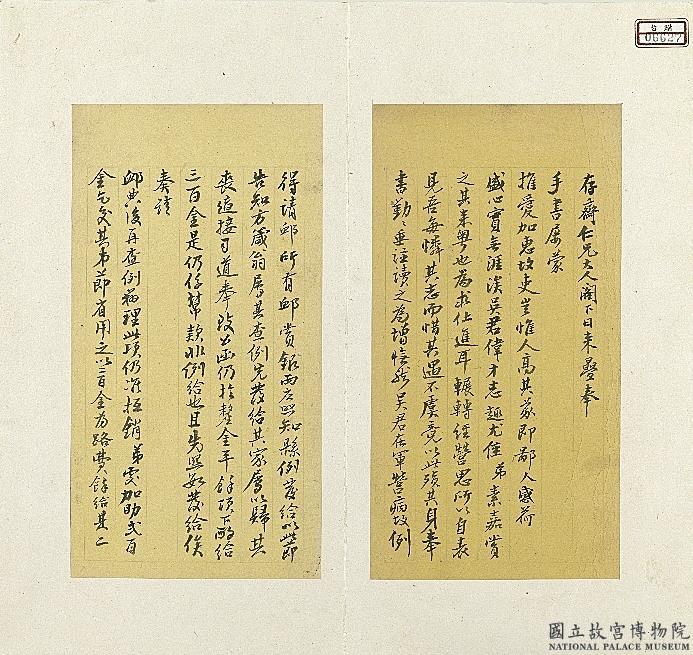 存齋仁兄大人閣下日來疊奉
手書屢蒙
推愛加惠故吏豈惟人高其義即鄙人感荷
盛心實無涯涘吳君偉才志趣尤佳弟素嘉賞
之其來粵也為求仕進耳輾轉經營思所以自表
見吾每憐其志而惜其遇不虞竟以此殞其身奉
書勤〻垂注讀之為增悵然吳君在軍營病故例
得請卹所有卹賞銀兩應照知縣例發給以此節
告知方箴翁屬其查例先發給其家屬以歸其
喪適接司道奉改公函仍於整金平餘項下酌給
三百金是仍係幫款非例給也且先照數發給俟
奏請
卹典後再查例辦理此項仍准抵銷弟處加助弍百
金乞交其弟節省用之以三百金為路費餘給其二
國立故宮博物院
NATIONAL PALACE MUSEUM